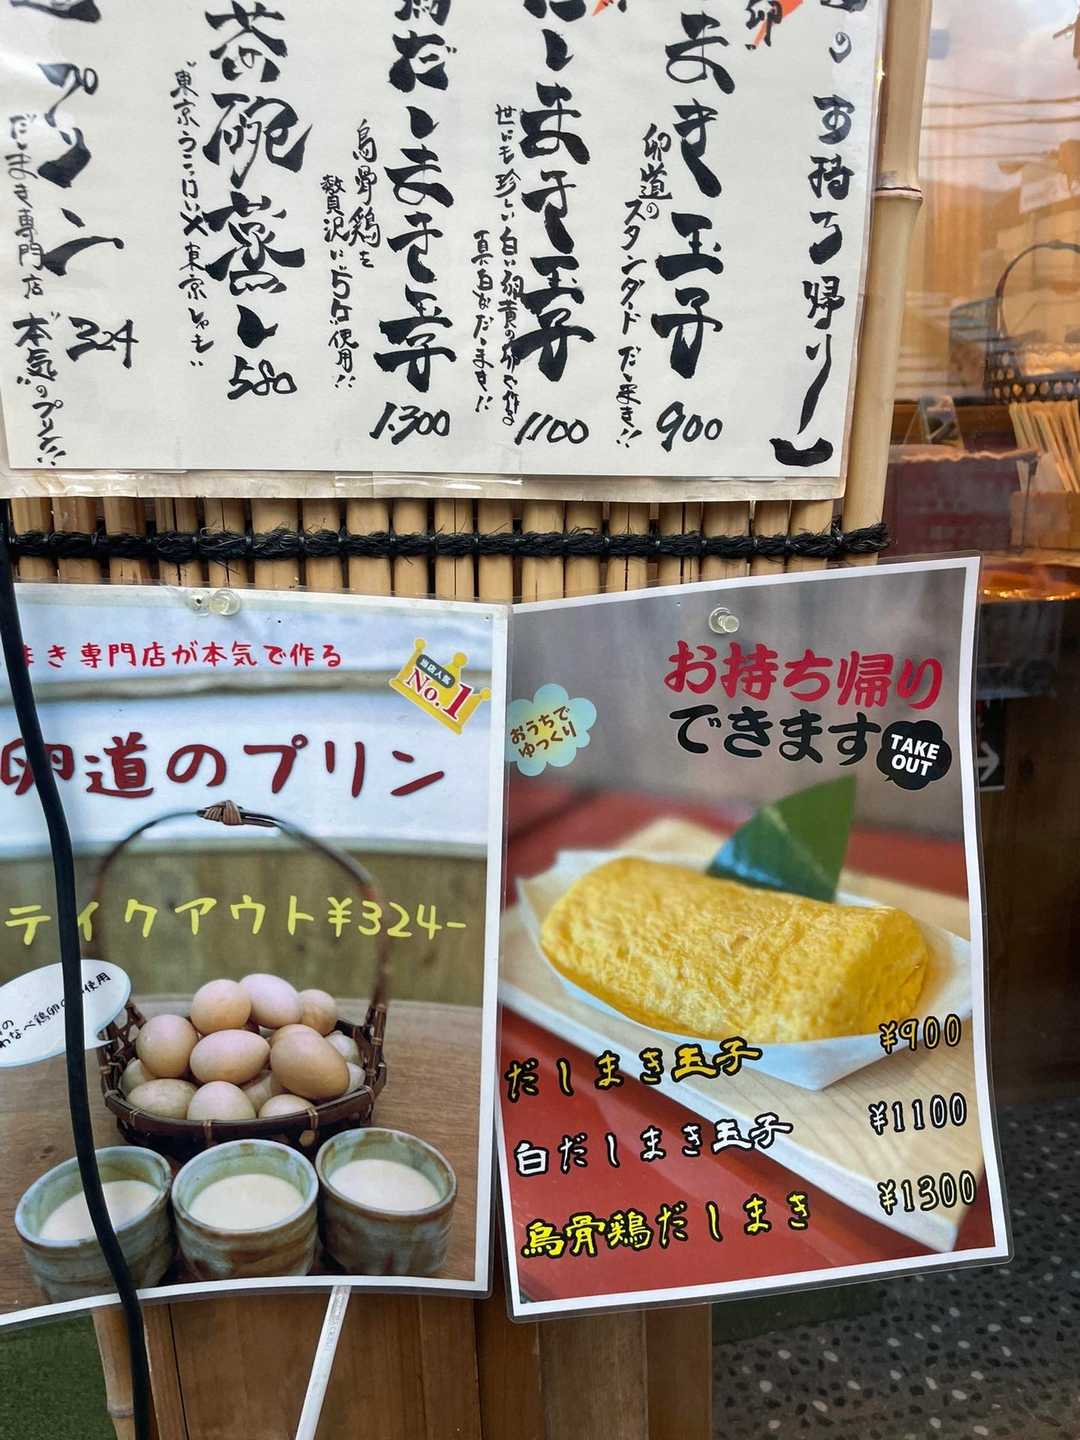 のお持ち帰り
まき玉子
卵道の
スタンダードだしまき!!
900
だしまき玉子
世にも珍しい白い卵黄の卵で作る
真白なだしまき!!
1100
だしまき玉子
烏骨鶏を
贅沢に5ヶ使用!!
1300
茶碗蒸し
"東京うこっけい×東京しゃも"
580
プリン
だしまき専門店
"本気"のプリン!!
324
まき専門店が本気で作る
当店人気
No.1
卵道のプリン
テイクアウト¥324-
おうちで
ゆっくり
お持ち帰り
できます
TAKE
OUT
だしまき玉子 ¥900
白だしまき玉子 ¥1100
烏骨鶏だしまき ¥1300